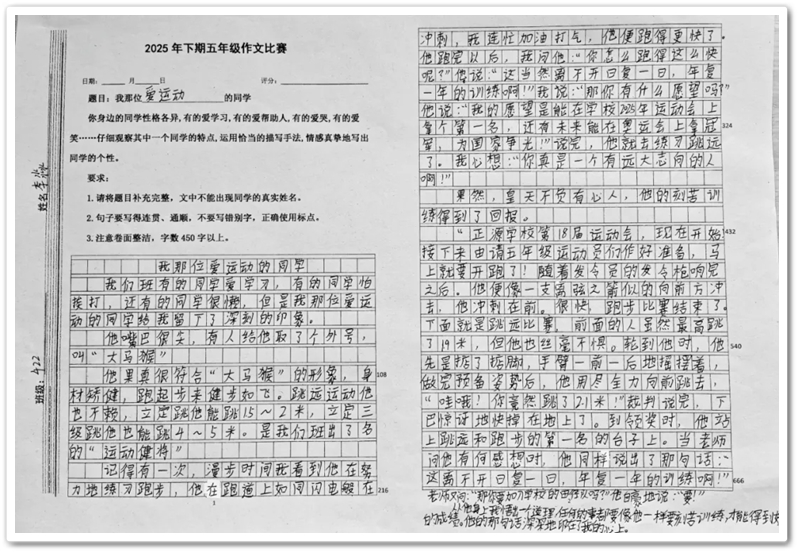 2025年下期五年级作文比赛
日期：____月____日 评分：
题目：我那位爱运动的同学
你身边的同学性格各异,有的爱学习,有的爱帮助人,有的爱哭,有的爱
笑……仔细观察其中一个同学的特点,运用恰当的描写手法,情感真挚地写出
同学的个性。
要求：
1.请将题目补充完整，文中不能出现同学的真实姓名。
2.句子要写得连贯、通顺，不要写错别字，正确使用标点。
3.注意卷面整洁，字数450字以上。
姓名：
班级：422
我那位爱运动的同学
我们班有的同学爱学习，有的同学怕
挨打，还有的同学很懒，但是我那位爱运
动的同学给我留下了深刻的印象。
他嘴巴很尖，有人给他取了个外号，
叫“大马猴”
他果真很符合“大马猴”的形象，身
108
材矫健，跑起步来健步如飞。跳远运动他
也不赖，立定跳他能跳15～2米，立定三
级跳他也能跳4～5米。是我们班出了名
的“运动健将”
记得有一次，漫步时间我看到他在努
力地练习跑步，他在跑道上如同闪电般在
216
1
冲刺，我连忙加油打气，他便跑得更快了。
他跑完以后，我问他：“你怎么跑得这么快
呢？”他说：“这当然离不开日复一日，年复
一年的训练啊！”我说：“那你有什么愿望吗？”
他说：“我的愿望是能在学校跳年运动会上
拿个第一名，还有未来能在奥运会上拿冠
324
军，为国家争光！”说完，他就去练习跳远
了。我心想：“你真是一个有远大志向的人
啊！”
果然，皇天不负有心人，他的刻苦训
练得到了回报。
“正源学校第18届运动会，现在开始
432
接下来由请五年级运动员们作好准备，马
上就要开跑了！随着发令员的发令枪响完
之后。他便像一支离弦之箭似的向前方冲
去，他冲刺在前。很快，跑步比赛结束了。
下面就是跳远比赛，前面的人虽然最高跳
了19米，但他也丝毫不惧。轮到他时，他
540
先是掂了掂脚，手臂一前一后地摇摆着，
做完预备姿势后，他用尽全力向前跳去，
“哇哦！你竟然跳了2.1米！”裁判说完，下
巴惊讶地快掉在地上了。到领奖时，他站
上跳远和跑步的第一名的台子上。当老师
问他有何感想时，他同样说出了那句话：“
这离不开日复一日，年复一年的训练啊！”
666
老师又问：“那你要加入学校的田径队吗？”他自豪地说：“要！”
的成绩。他的那句话深深地印在了我的心上。